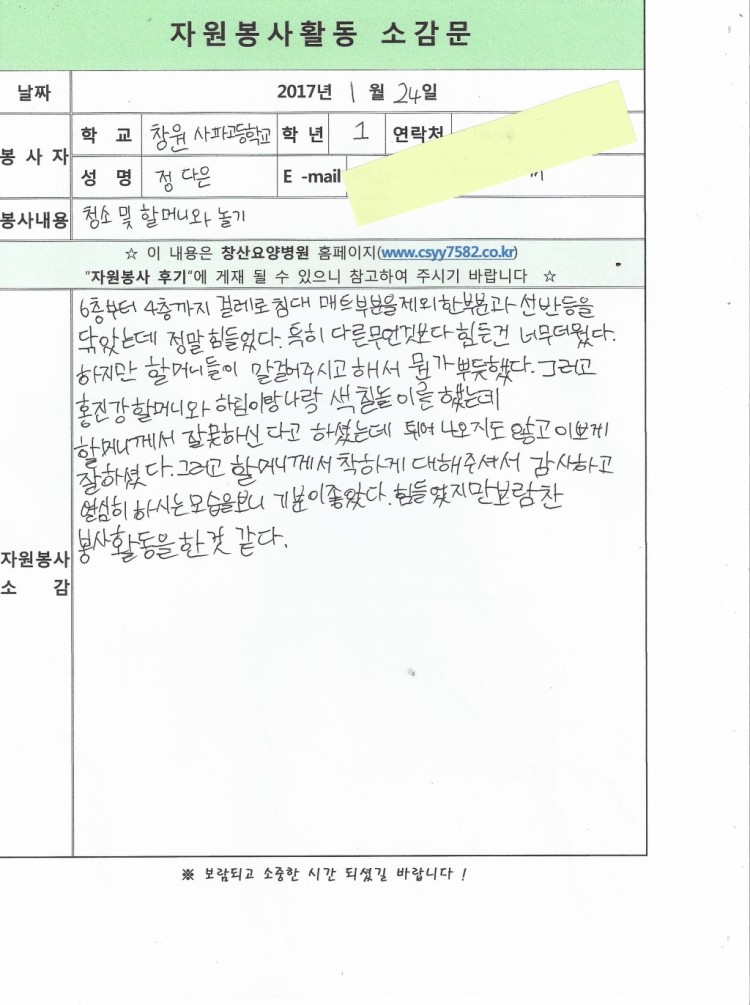 자원봉사활동 소감문
날짜 2017년 1 월 24일
봉 사 자 학 교 창원 사파고등학교 학 년 1 연락처
성 명 정 다은 E -mail
봉사내용 청소 및 할머니와 놀기
☆ 이 내용은 창산요양병원 홈페이지(www.csyy7582.co.kr)
"자원봉사 후기"에 게재 될 수 있으니 참고하여 주시기 바랍니다 ☆
자원봉사 소 감
6층부터 4층까지 걸레로 침대 매트부분을 제외한부분과 선반등을
닦았는데 정말 힘들었다. 특히 다른무언것보다 힘든건 너무더웠다.
하지만 할머니들이 말걸어주시고 해서 뭔가 뿌듯했다. 그리고
홍진강할머니와 하림이랑나랑 색칠놀이를 했는데
할머니께서 잘못하신다고 하셨는데 튀어 나오지도 않고 이쁘게
잘하셨다. 그리고 할머니께서 착하게 대해주셔서 감사하고
열심히 하시는모습을보니 기분이좋았다. 힘들었지만보람찬
봉사활동을한것 같다.
※ 보람되고 소중한 시간 되셨길 바랍니다 !